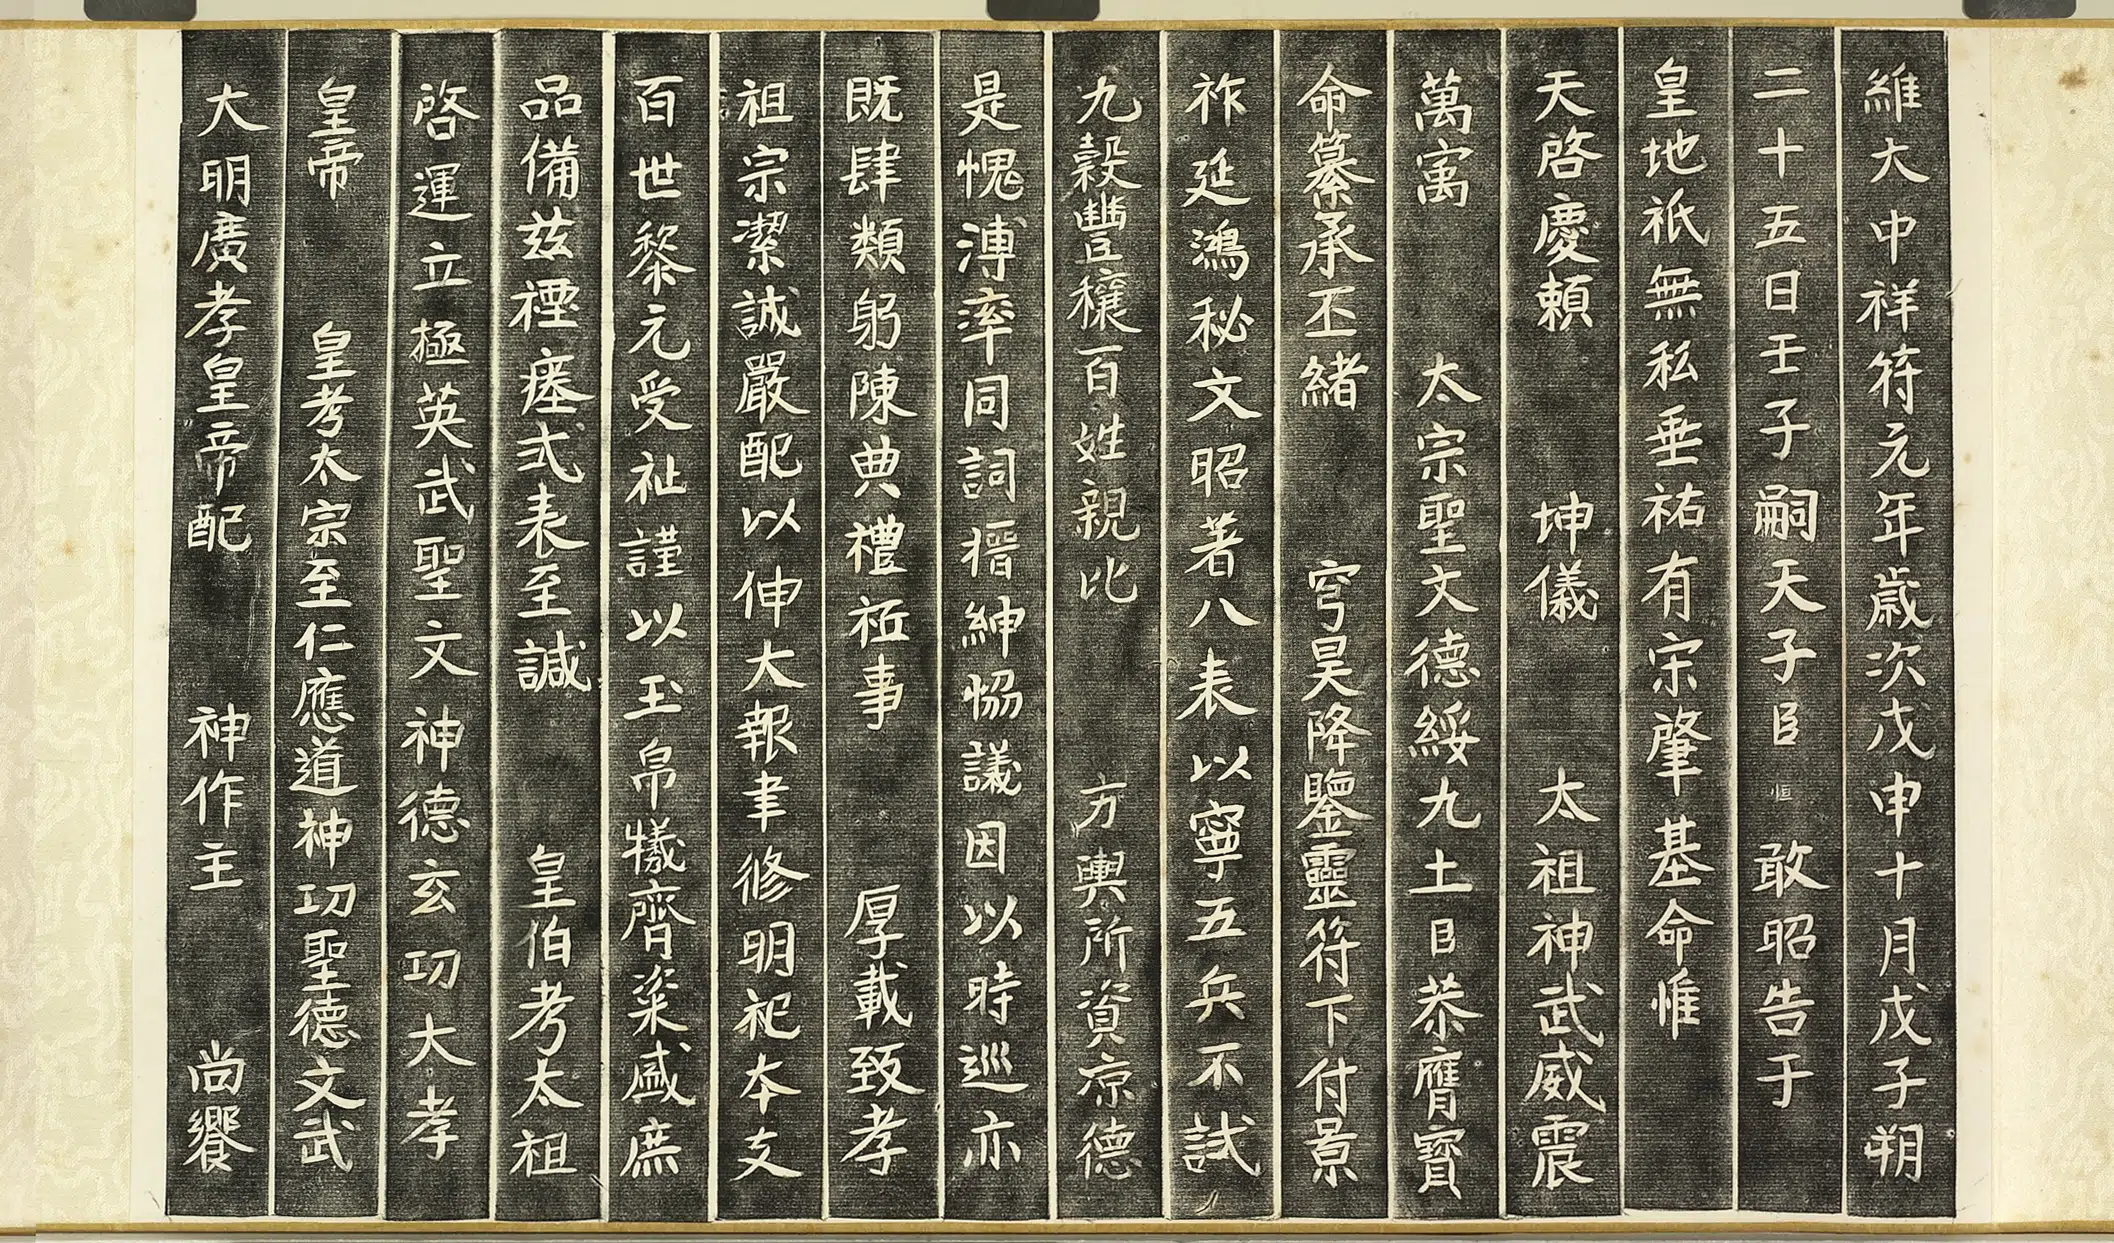 維大中祥符元年歲次戊申十月戊子朔
二十五日壬子嗣天子臣恒敢昭告于
皇地祇無私垂祐有宋肇基命惟
天啓慶賴 坤儀 太祖神武威震
萬寓 太宗聖文德綏九土臣恭膺寶
命纂承丕緒 穹昊降鑒靈符下付景
祚延鴻秘文昭著八表以寧五兵不試
九穀豐穰百姓親比 方輿所資凉德
是愧溥率同詞搢紳恊議因以時巡亦
既肆類躬陳典禮祗事 厚載致孝
祖宗潔誠嚴配以伸大報聿修明祀本支
百世黎元受祉謹以玉帛犧齊粢盛庶
品備茲禋瘞式表至諴 皇伯考太祖
啓運立極英武聖文神德玄功大孝
皇帝 皇考太宗至仁應道神功聖德文武
大明廣孝皇帝配 神作主 尚饗